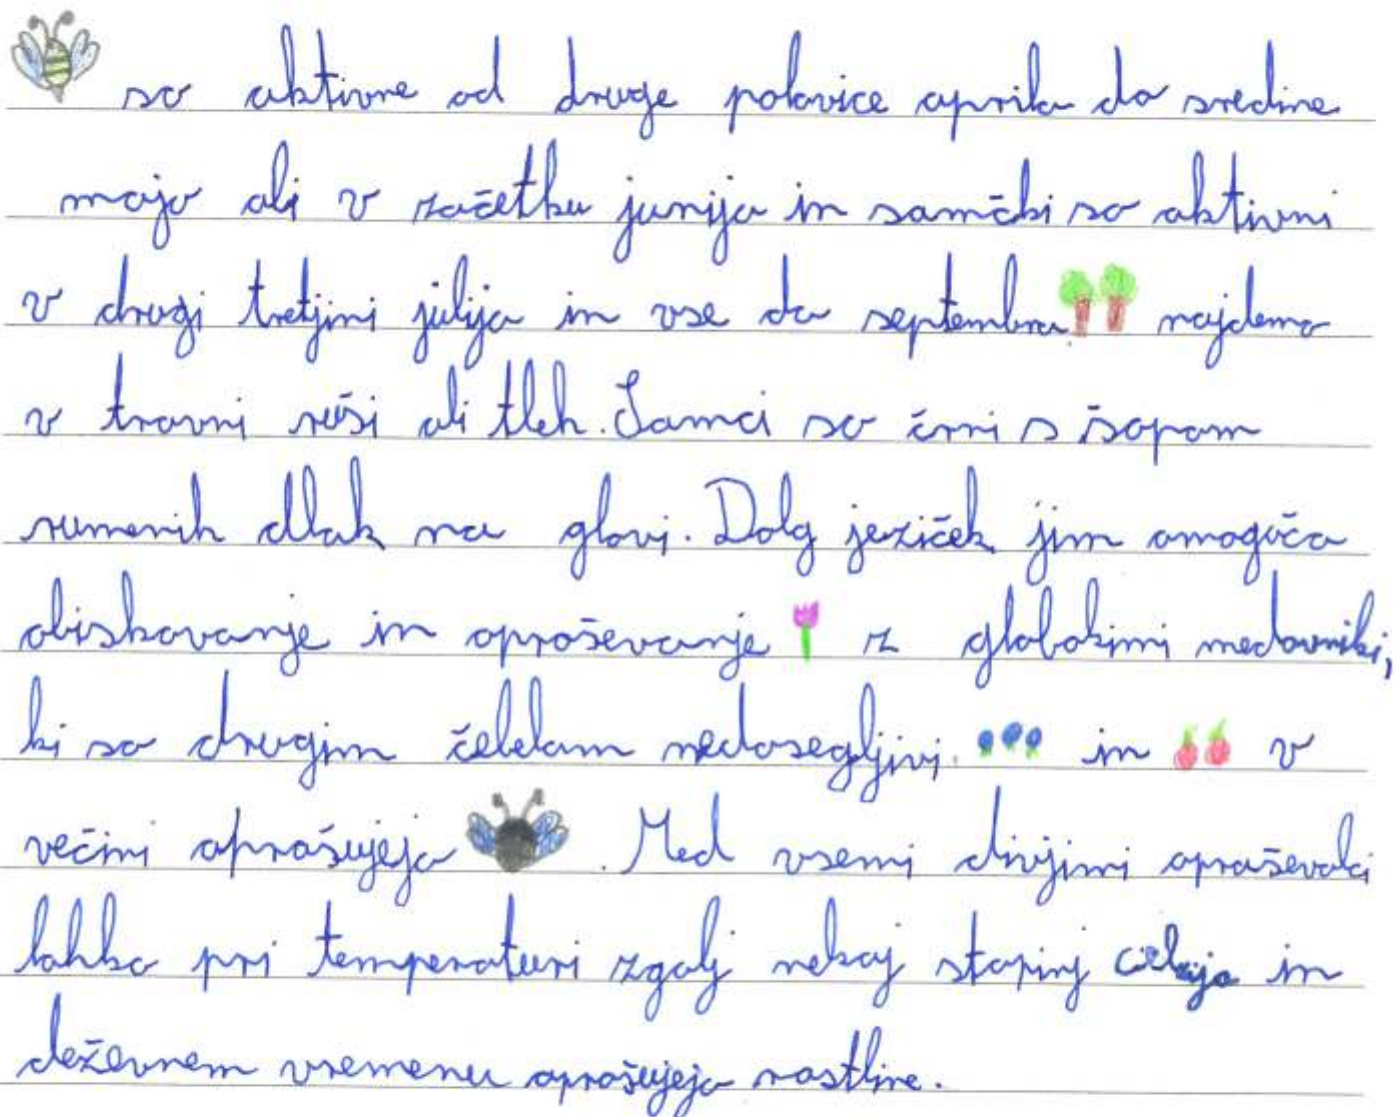 so aktivne od druge polovice aprila do sredine
maja ali v začetku junija in samčki so aktivni
v drugi tretjini julija in vse do septembra. najdemo
v travni ruši ali tleh. Samci so črni s šopom
rumenih dlak na glavi. Dolg jeziček jim omogoča
obiskovanje in opraševanje z globokimi medovniki,
ki so drugim čebelam nedosegljivi. in v
večini oprašujejo . Med vsemi divjimi opraševalci
lahko pri temperaturi zgolj nekaj stopinj celzija in
deževnem vremenu oprašujejo rastline.